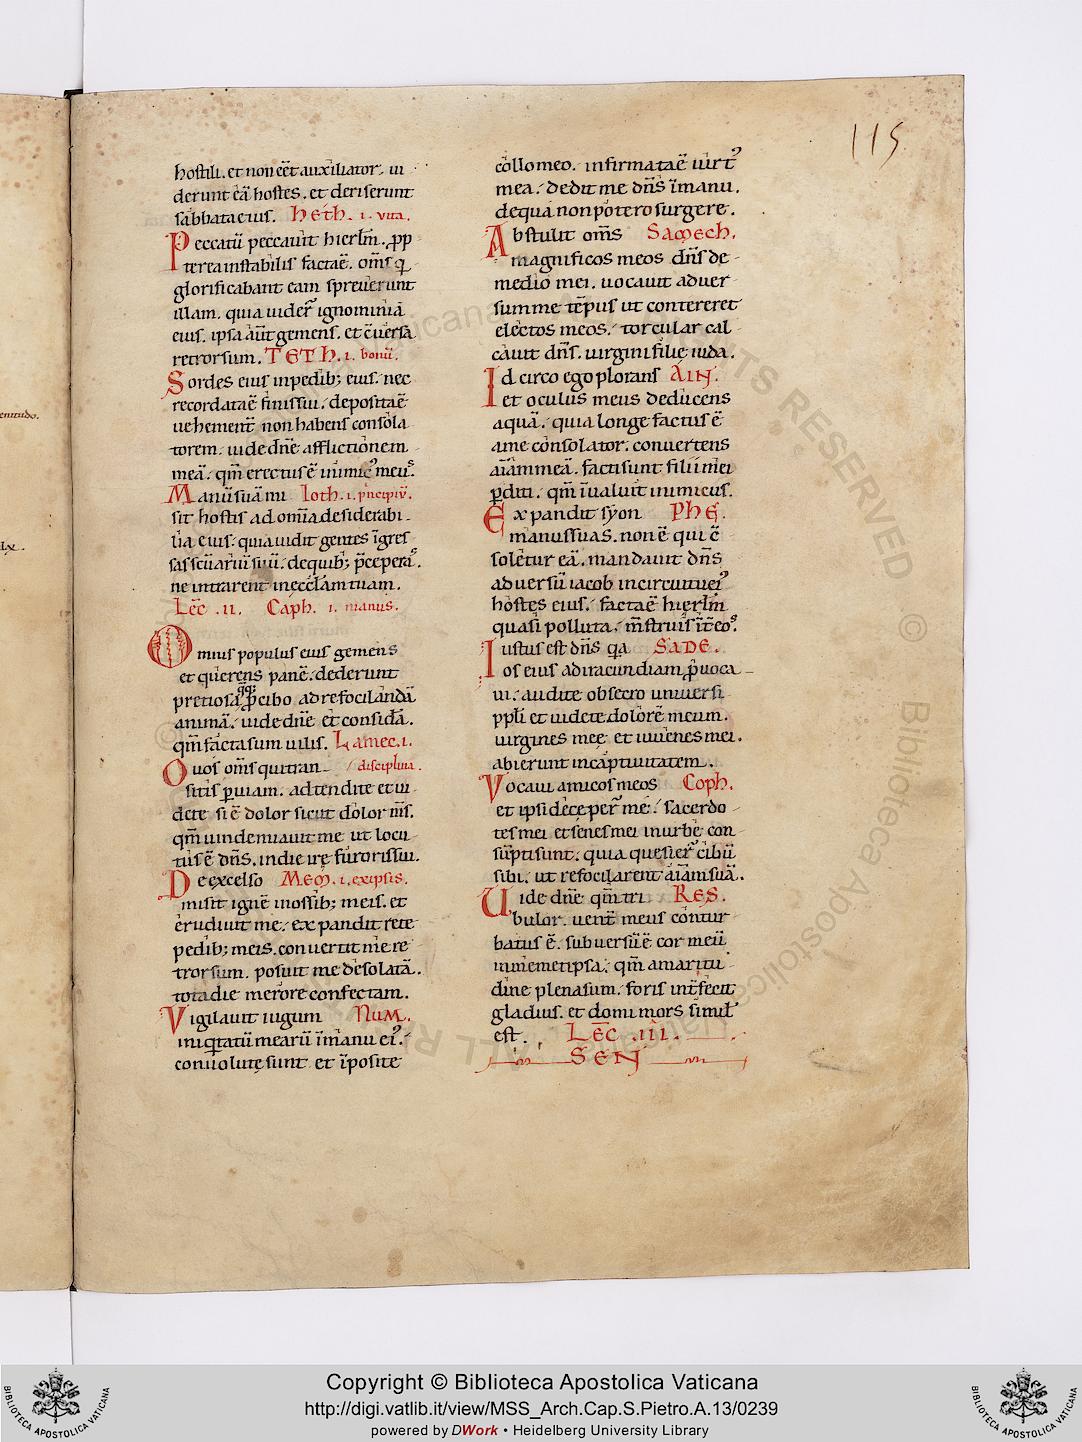 115
hostili. et non eēt auxiliator. ui
derunt eā hostes. et deriserunt
sabbata eius. heth. i. vita.
Peccatū peccauit hierl̄m. ꝓp
terea instabilis factaē. om̄s q̄
glorificabant eam spreuerunt
illam. quia uider̄ ignominiā
eius. ipsa aūt gemens. et cuersa
retrorsum. TETh. i. bonū.
Sordes eius inpedib; eius. nec
recordataē finis sui. depositaē
uehement̄ non habens consola
torem. uide dn̄e afflictionem
meā. qm̄ erectusē inimicꝰ meuꝰ.
Manūsuā mi Ioth. i. pncipiū.
sit hostis ad omīa desiderabi
lia eius. quia uidit gentes īgres
sas scūariū suū. de quib; p̄ceperaꝰ.
ne intrarent in eccl̄am tuam.
Lēc .ii. Caph. i. manus.
Omius populus eius gemens
et querens panē. dederunt
pretiosa q̄q; p̄cibo ad refocilandā
animā. uide dn̄e et considā.
qm̄ facta sum uilis. Lamec. i.
O uos om̄s qui tran disciplina.
sitis ꝑuiam. adtendite et ui
dete si ē dolor sicut dolor m̄s.
qm̄ uindemiauit me ut locu
tusē dn̄s. indie irę furoris sui.
De excelso Mem. i. ex ipsis.
misit ignē inossib; meis. et
erudiuit me. expandit rete
pedib; meis. conuertit me re
trorsum. posuit me desolatā.
tota die merore confectam.
Vigilauit iugum Num.
iniq̄tatū mearū īmanu eiꝰ.
conuolutę sunt et īposite
collo meo. infirmataē uirtꝰ
mea. dedit me dn̄s īmanu.
de qua non potero surgere.
Abstulit om̄s Samech.
magnificos meos dn̄s de
medio mei. uocauit aduer
sum me tēpus ut contereret
electos meos. torcular cal
cauit dn̄s. uirgini filię iuda.
Idcirco ego plorans AIN.
et oculus meus deducens
aquā. quia longe factus ē
a me consolator. conuertens
aīam meā. facti sunt filii mei
ꝑditi. qm̄ īualuit inimicus.
Expandit syon PHE.
manus suas. non ē qui ē
soletur eā. mandauit dn̄s
aduersū iacob in circuitu eiꝰ
hostes eius. factaē hierl̄m
quasi polluta. m̄struis īt̄eoꝰ.
Iustus est dn̄s q̄a SADE.
os eius ad iracundiam ꝓuoca
ui. audite obsecro uniuersi
ppl̄i et uidete dolorē meum.
uirgines meę et iuuenes mei.
abierunt in captiuitatem.
Vocaui amicos meos Coph.
et ipsi deceper̄ me. sacerdo
tes mei et senes mei in urbe con
sūpti sunt. quia quesier̄ cibū
sibi. ut refocilarent aīam suā.
Uide dn̄e qm̄ tri RES.
bulor. uent̄ meus contur
batus ē. subuersūē cor meū
in memetipsa. qm̄ amaritu
dine plena sum. foris int̄fecit
gladius. et domi mors simil̄
est. LĒC .iii.
SEN
enitudo.
lx.
Copyright © Biblioteca Apostolica Vaticana
http://digi.vatlib.it/view/MSS_Arch.Cap.S.Pietro.A.13/0239
powered by DWork • Heidelberg University Library
BIBLIOTECA APOSTOLICA VATICANA
BIBLIOTECA APOSTOLICA VATICANA